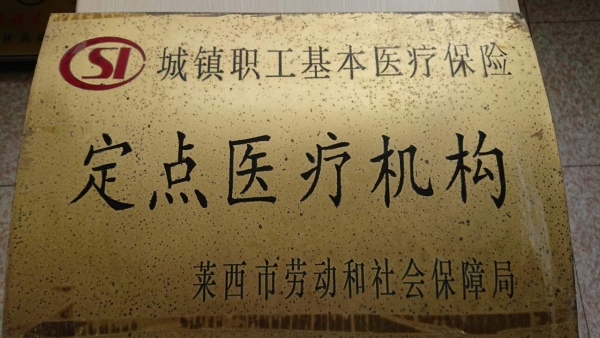 SI 城镇职工基本医疗保险
定点医疗机构
莱西市劳动和社会保障局